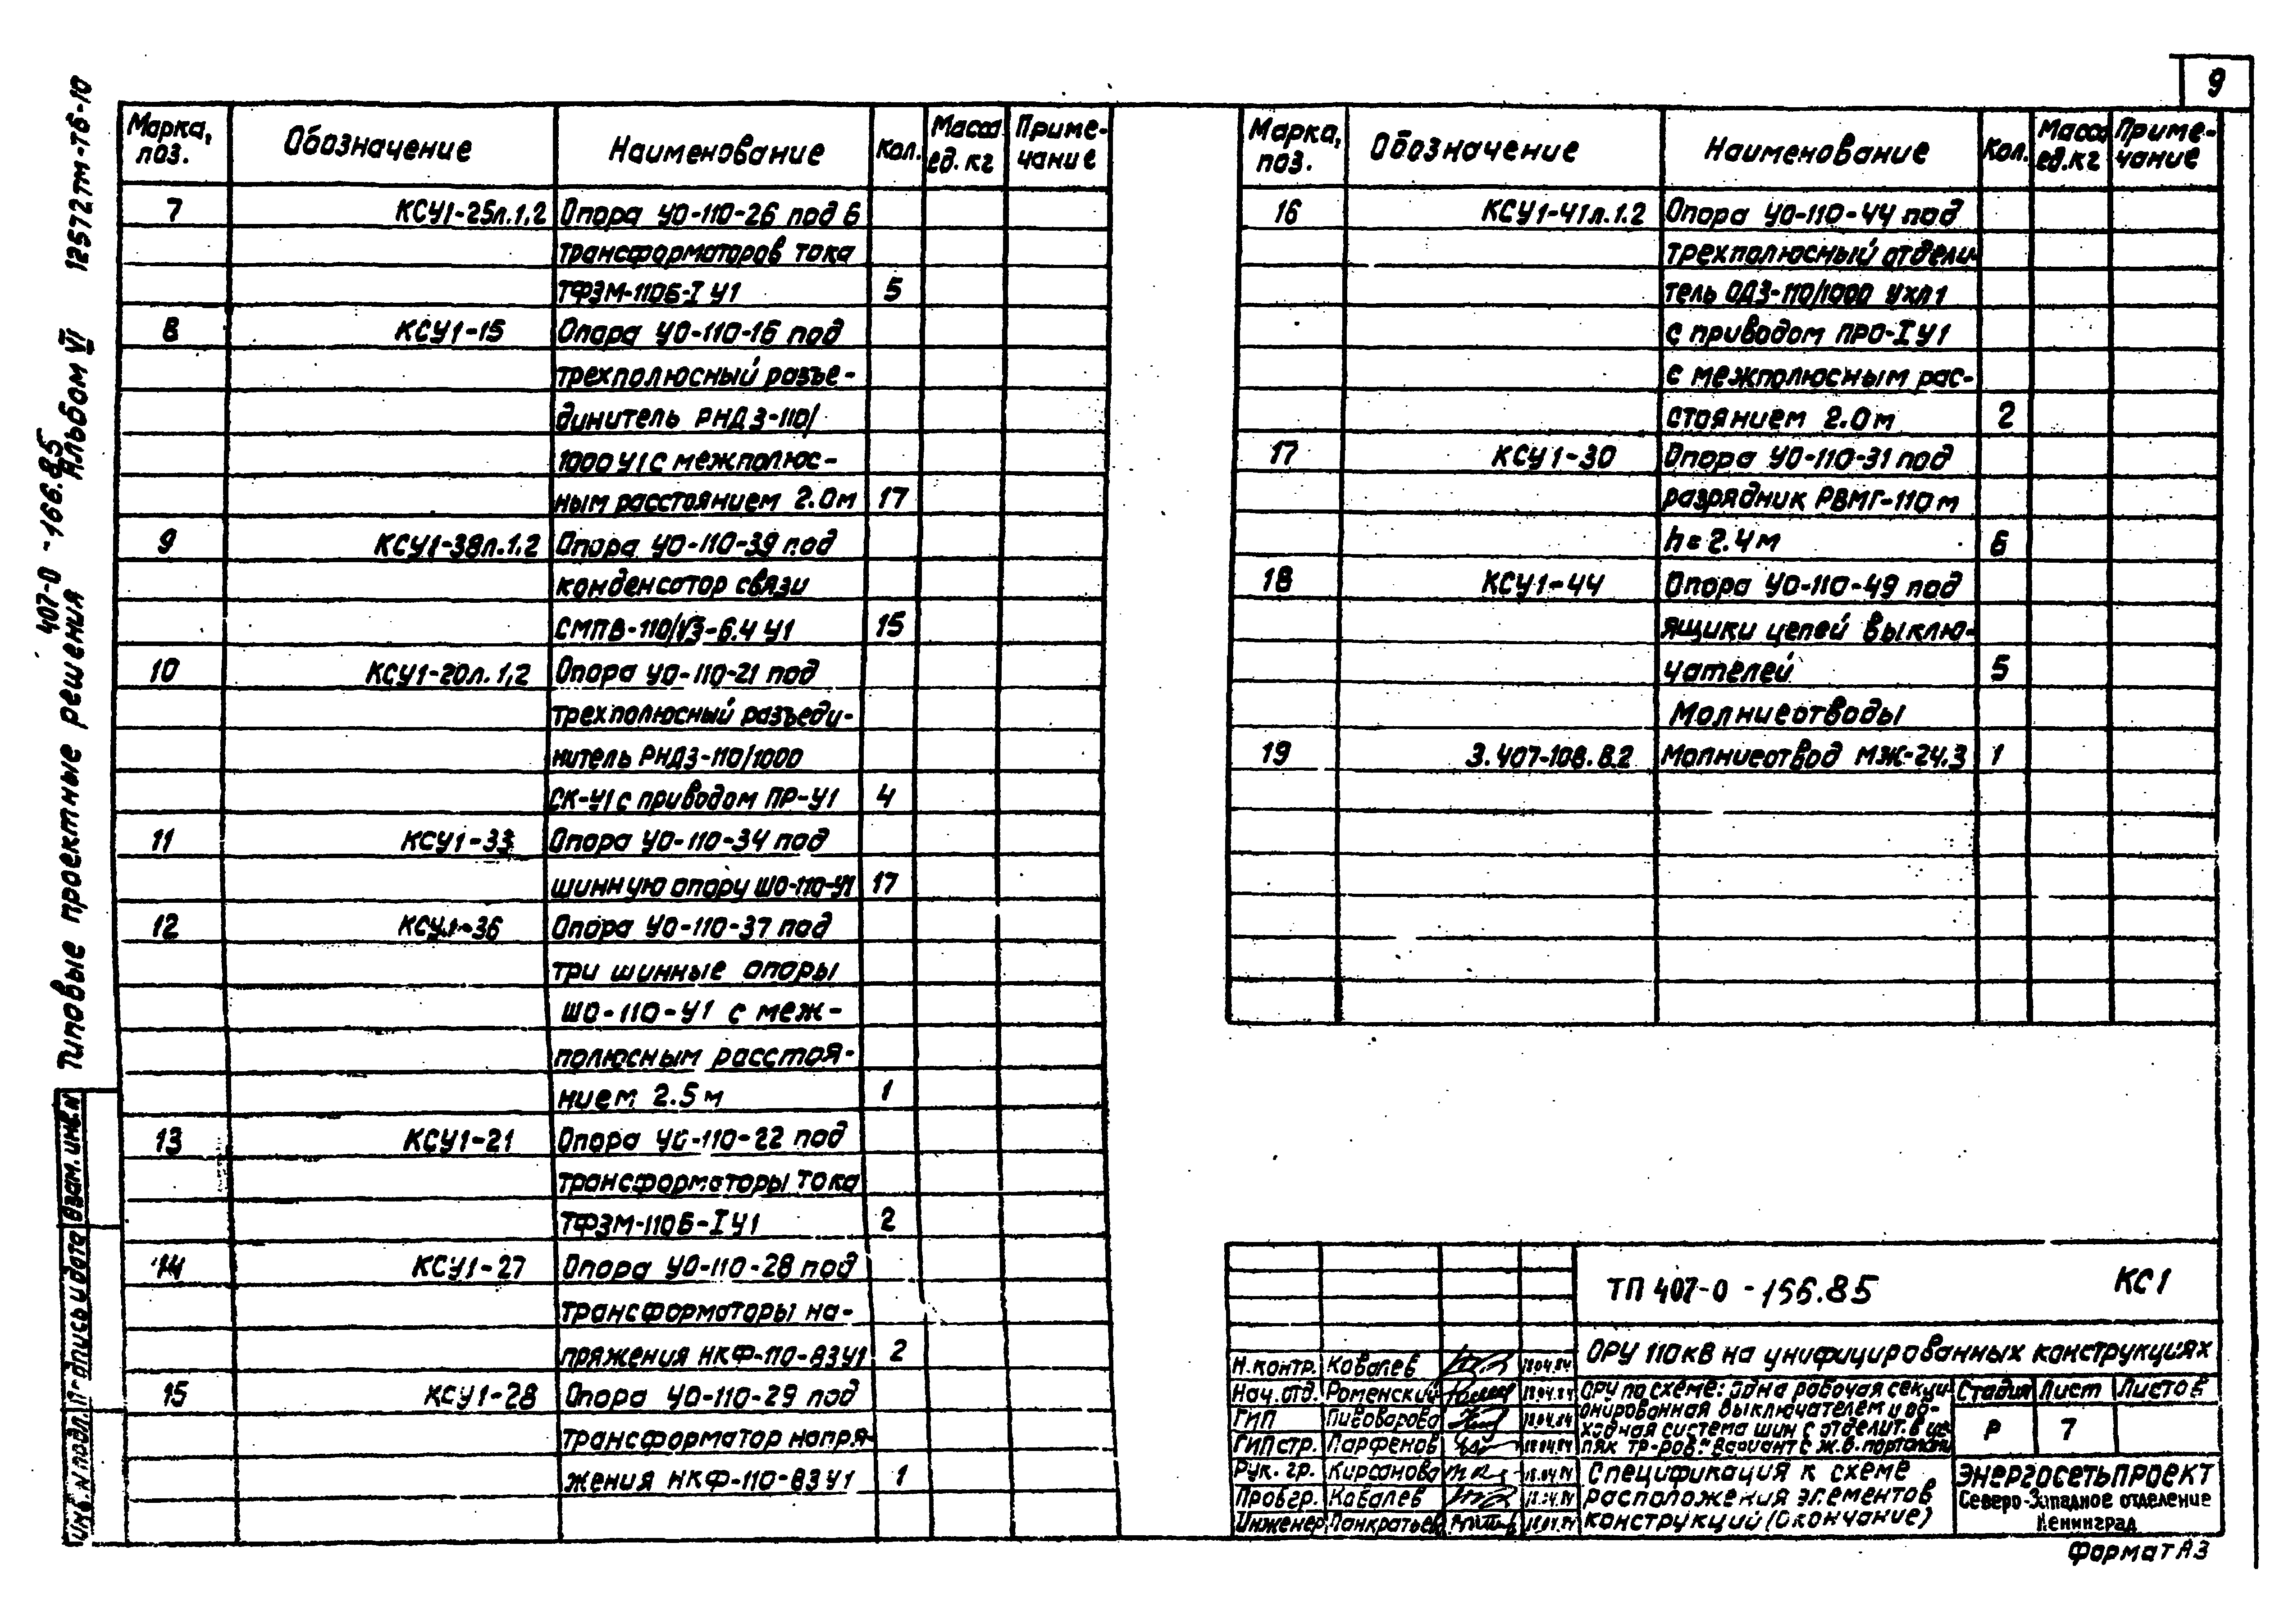 9
12572тм-т6-10
407-0-166.85
Альбом VI
Типовые проектные решения
Взам.инв.N
Подпись и дата
Инв.N подл.
Марка, поз. Обозначение Наименование Кол. Масса ед.кг Приме-чание
7 КСУ1-25л.1,2 Опора УО-110-26 под 6
трансформаторов тока
ТФЗМ-110Б-I У1 5
8 КСУ1-15 Опора УО-110-16 под
трехполюсный разъе-
динитель РНДЗ-110/
1000 У1 с межполюс-
ным расстоянием 2.0м 17
9 КСУ1-38л.1,2 Опора УО-110-39 под
конденсатор связи
СМПВ-110/√3-6.4 У1 15
10 КСУ1-20л.1,2 Опора УО-110-21 под
трехполюсный разъеди-
нитель РНДЗ-110/1000
СК-У1 с приводом ПР-У1 4
11 КСУ1-33 Опора УО-110-34 под
шинную опору ШО-110-У1 17
12 КСУ1-36 Опора УО-110-37 под
три шинные опоры
ШО-110-У1 с меж-
полюсным расстоя-
нием 2.5м 1
13 КСУ1-21 Опора УО-110-22 под
трансформаторы тока
ТФЗМ-110Б-I У1 2
14 КСУ1-27 Опора УО-110-28 под
трансформаторы на-
пряжения НКФ-110-83У1 2
15 КСУ1-28 Опора УО-110-29 под
трансформатор напря-
жения НКФ-110-83У1 1
Марка, поз. Обозначение Наименование Кол. Масса ед.кг Приме-чание
16 КСУ1-41л.1.2 Опора УО-110-44 под
трехполюсный отдели-
тель ОДЗ-110/1000 УХЛ1
с приводом ПРО-I У1
с межполюсным рас-
стоянием 2.0м 2
17 КСУ1-30 Опора УО-110-31 под
разрядник РВМГ-110м
h=2.4м 6
18 КСУ1-44 Опора УО-110-49 под
ящики цепей выклю-
чателей 5
Молниеотводы
19 3.407-108.В.2 Молниеотвод МЖ-24.3 1
ТП 407-0-166.85 КС1
ОРУ 110кВ на унифицированных конструкциях
Н.контр. Ковалев 18.04.84
Нач.отд. Роменский 18.04.84
ГИП Пивоварова 18.04.84
ГИП стр. Парфенов 18.04.84
Рук. гр. Кирсанова 18.04.84
Пров гр. Ковалев 18.04.84
Инженер Панкратьев 18.04.84
ОРУ по схеме: одна рабочая секци-
онированная выключателем и об-
ходная система шин с отделит. в це-
пях тр-ров. Вариант с ж.б. порталами
Стадия Лист Листов
Р 7
Спецификация к схеме
расположения элементов
конструкций (Окончание)
ЭНЕРГОСЕТЬПРОЕКТ
Северо-Западное отделение
Ленинград
Формат А3